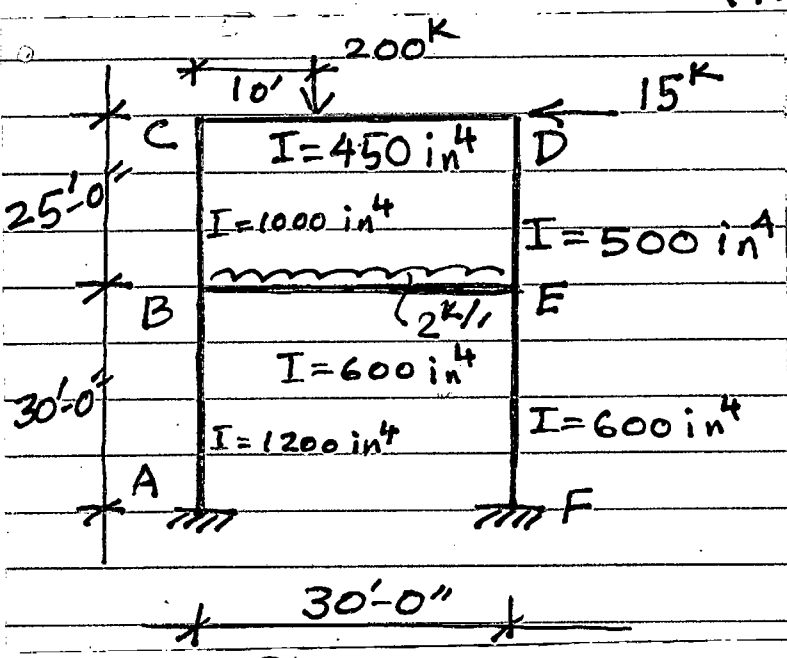 200K
10'
15K
C
I=450 in⁴
D
25'-0"
I=1000 in⁴
I=500 in⁴
B
E
2K/'
I=600 in⁴
30'-0"
I=1200 in⁴
I=600 in⁴
A
F
30'-0"